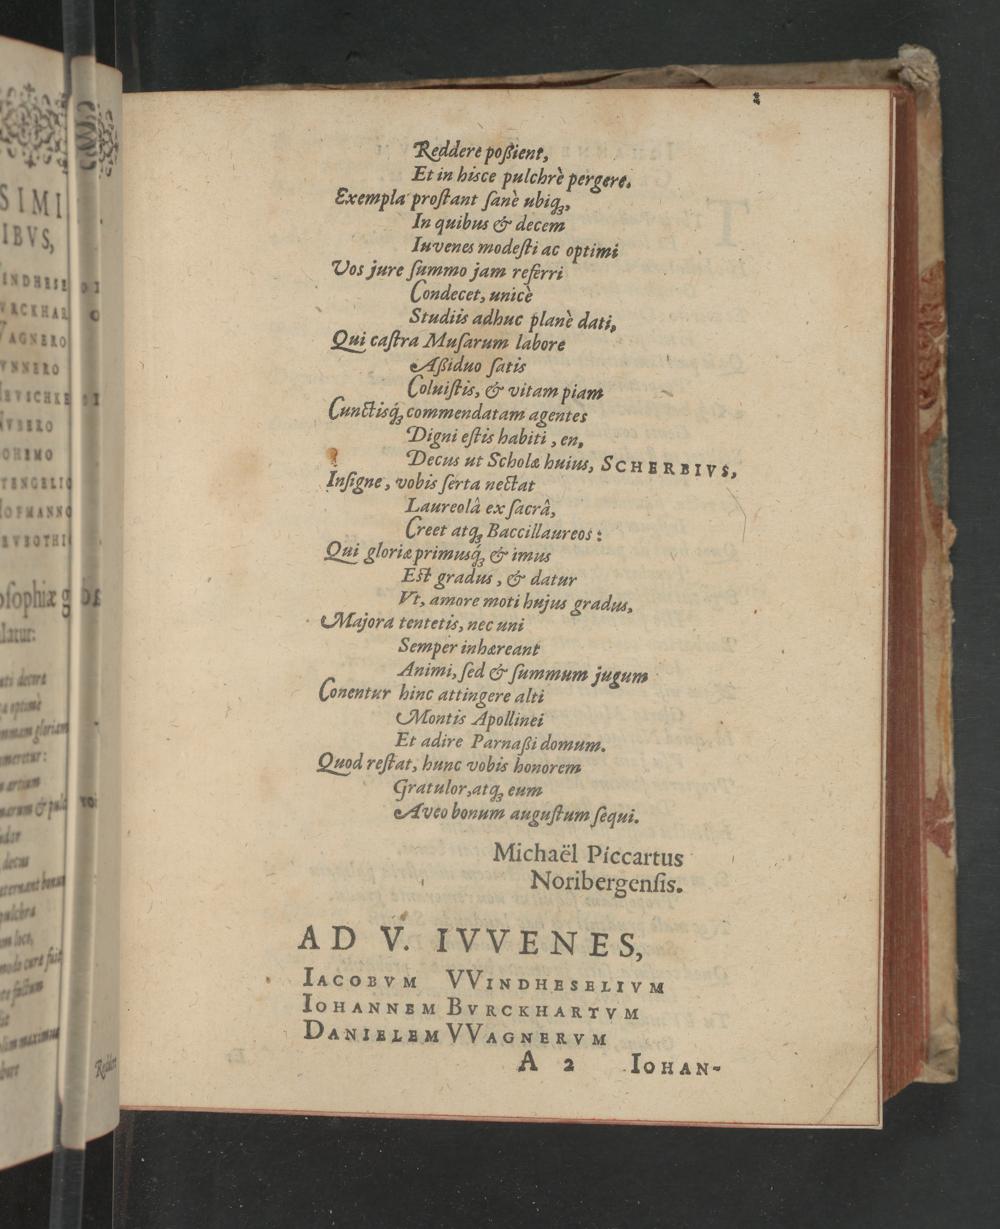 SIMI
IBVS,
INDHESE
VRCKHAR
VAGNERO
VNNERO
EVSCHKE
NVBERO
OHEMO
TENGELIO
HOFMANNO
EVBOTHI
osophiæ g
latur:
Reddere
Reddere poßient,
Et in hisce pulchrè pergere.
Exempla proſtant ſanè ubiq́ꝫ,
In quibus & decem
Iuvenes modeſti ac optimi
Vos jure ſummo jam referri
Condecet, unicè
Studiis adhuc planè dati,
Qui caſtra Muſarum labore
Aßiduo ſatis
Coluiſtis, & vitam piam
Cunctisq́ꝫ commendatam agentes
Digni eſtis habiti, en,
Decus ut Scholæ huius, SCHERBIVS,
Inſigne, vobis ſerta nectat
Laureolâ ex ſacrâ,
Creet atqꝫ Baccillaureos:
Qui gloriæ primusq́ꝫ & imus
Est gradus, & datur
Vt, amore moti hujus gradus,
Majora tentetis, nec uni
Semper inhæreant
Animi, ſed & ſummum jugum
Conentur hinc attingere alti
Montis Apollinei
Et adire Parnaßi domum.
Quod reſtat, hunc vobis honorem
Gratulor, atqꝫ eum
Aveo bonum auguſtum ſequi.
Michaël Piccartus
Noribergenſis.
AD V. IVVENES,
IACOBVM VVINDHESELIVM
IOHANNEM BVRCKHARTVM
DANIELEM VVAGNERVM
A 2 IOHAN-